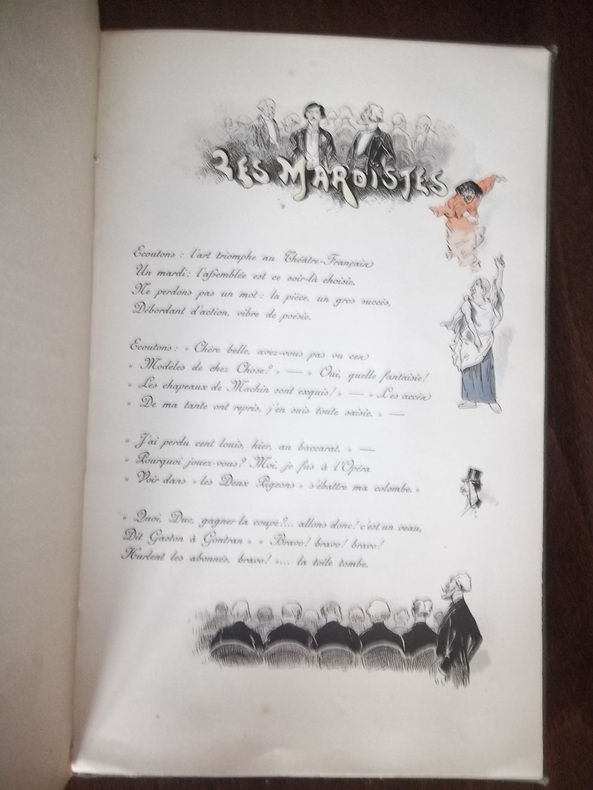 LES MARDISTES
Ecoutons : l'art triomphe au Théâtre-Français
Un mardi : l'assemblée est ce soir-là choisie.
Ne perdons pas un mot : la pièce, un gros succès,
Débordant d'action, vibre de poésie.
Ecoutons : « Chère belle, avez-vous pas vu ces
« Modèles de chez Chose ? » — « Oui, quelle fantaisie !
« Les chapeaux de Machin sont exquis ! » — « Les accès
« De ma tante ont repris, j'en suis toute saisie. » —
« J'ai perdu cent louis, hier, au baccarat. » —
« Pourquoi jouez-vous ? Moi, je fus à l'Opéra
« Voir dans « les Deux Pigeons » s'ébattre ma colombe. »
« Quoi, Duc, gagner la coupe ?... allons donc ! c'est un veau,
Dit Gaston à Gontran » « Bravo ! bravo ! bravo !
Hurlent les abonnés, bravo ! »... la toile tombe.